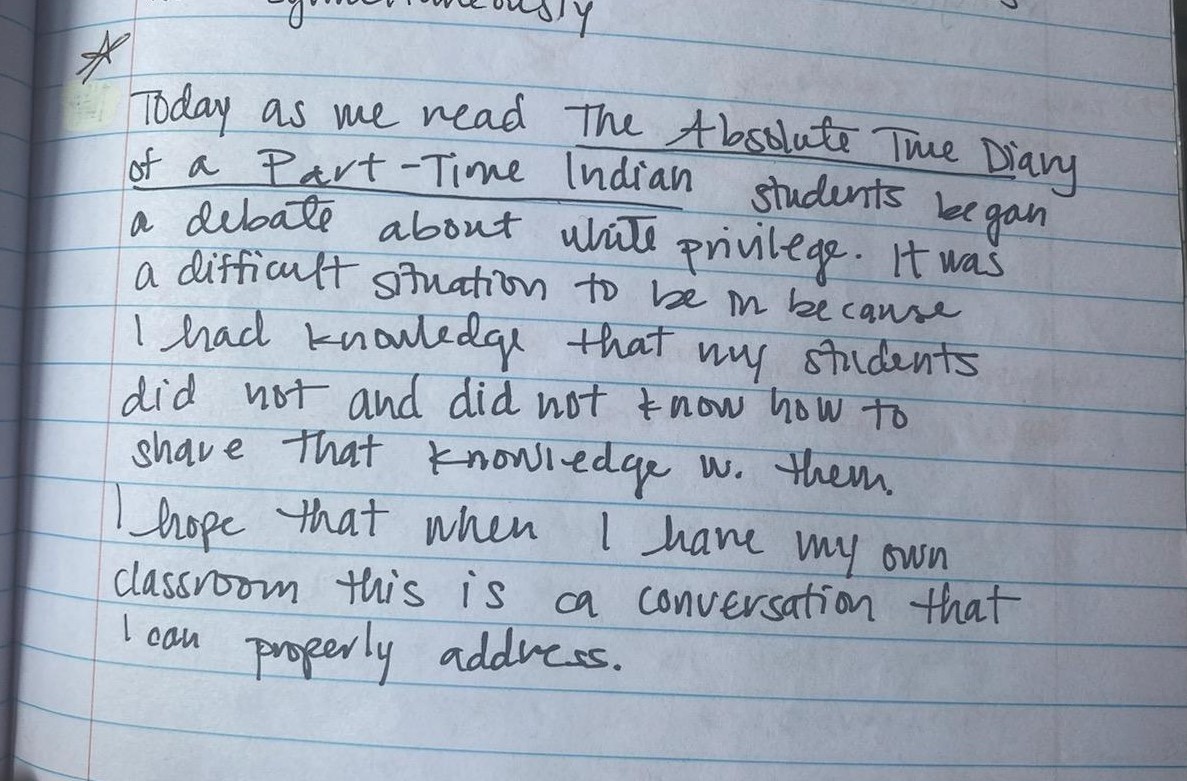 Today as we read The Absolute True Diary
of a Part-Time Indian students began
a debate about white privilege. It was
a difficult situation to be in because
I had knowledge that my students
did not and did not know how to
share that knowledge w. them.
I hope that when I have my own
classroom this is a conversation that
I can properly address.